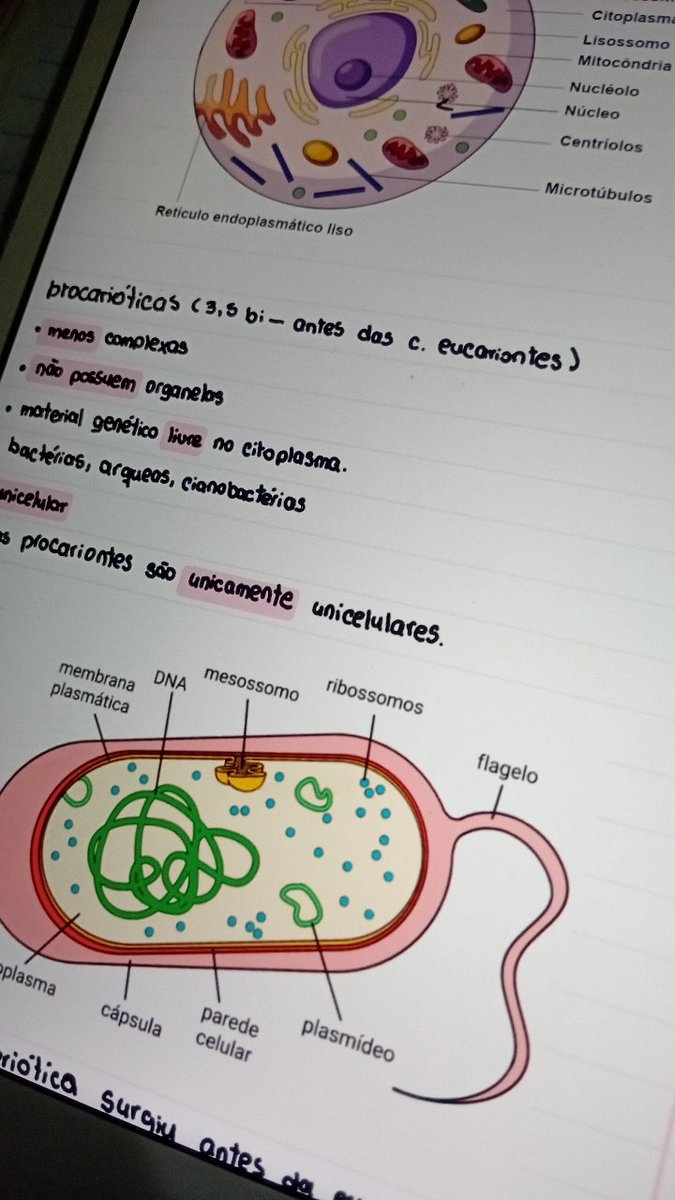 Citoplasma
Lisossomo
Mitocôndria
Nucléolo
Núcleo
Centríolos
Microtúbulos
Retículo endoplasmático liso
procarióticas (3,5 bi - antes das c. eucariontes)
• menos complexas
• não possuem organelas
• material genético livre no citoplasma.
bactérias, arqueas, cianobactérias
unicelular
procariontes são unicamente unicelulares.
membrana
plasmática
DNA
mesossomo
ribossomos
flagelo
oplasma
cápsula
parede
celular
plasmídeo
riótica surgiu antes da